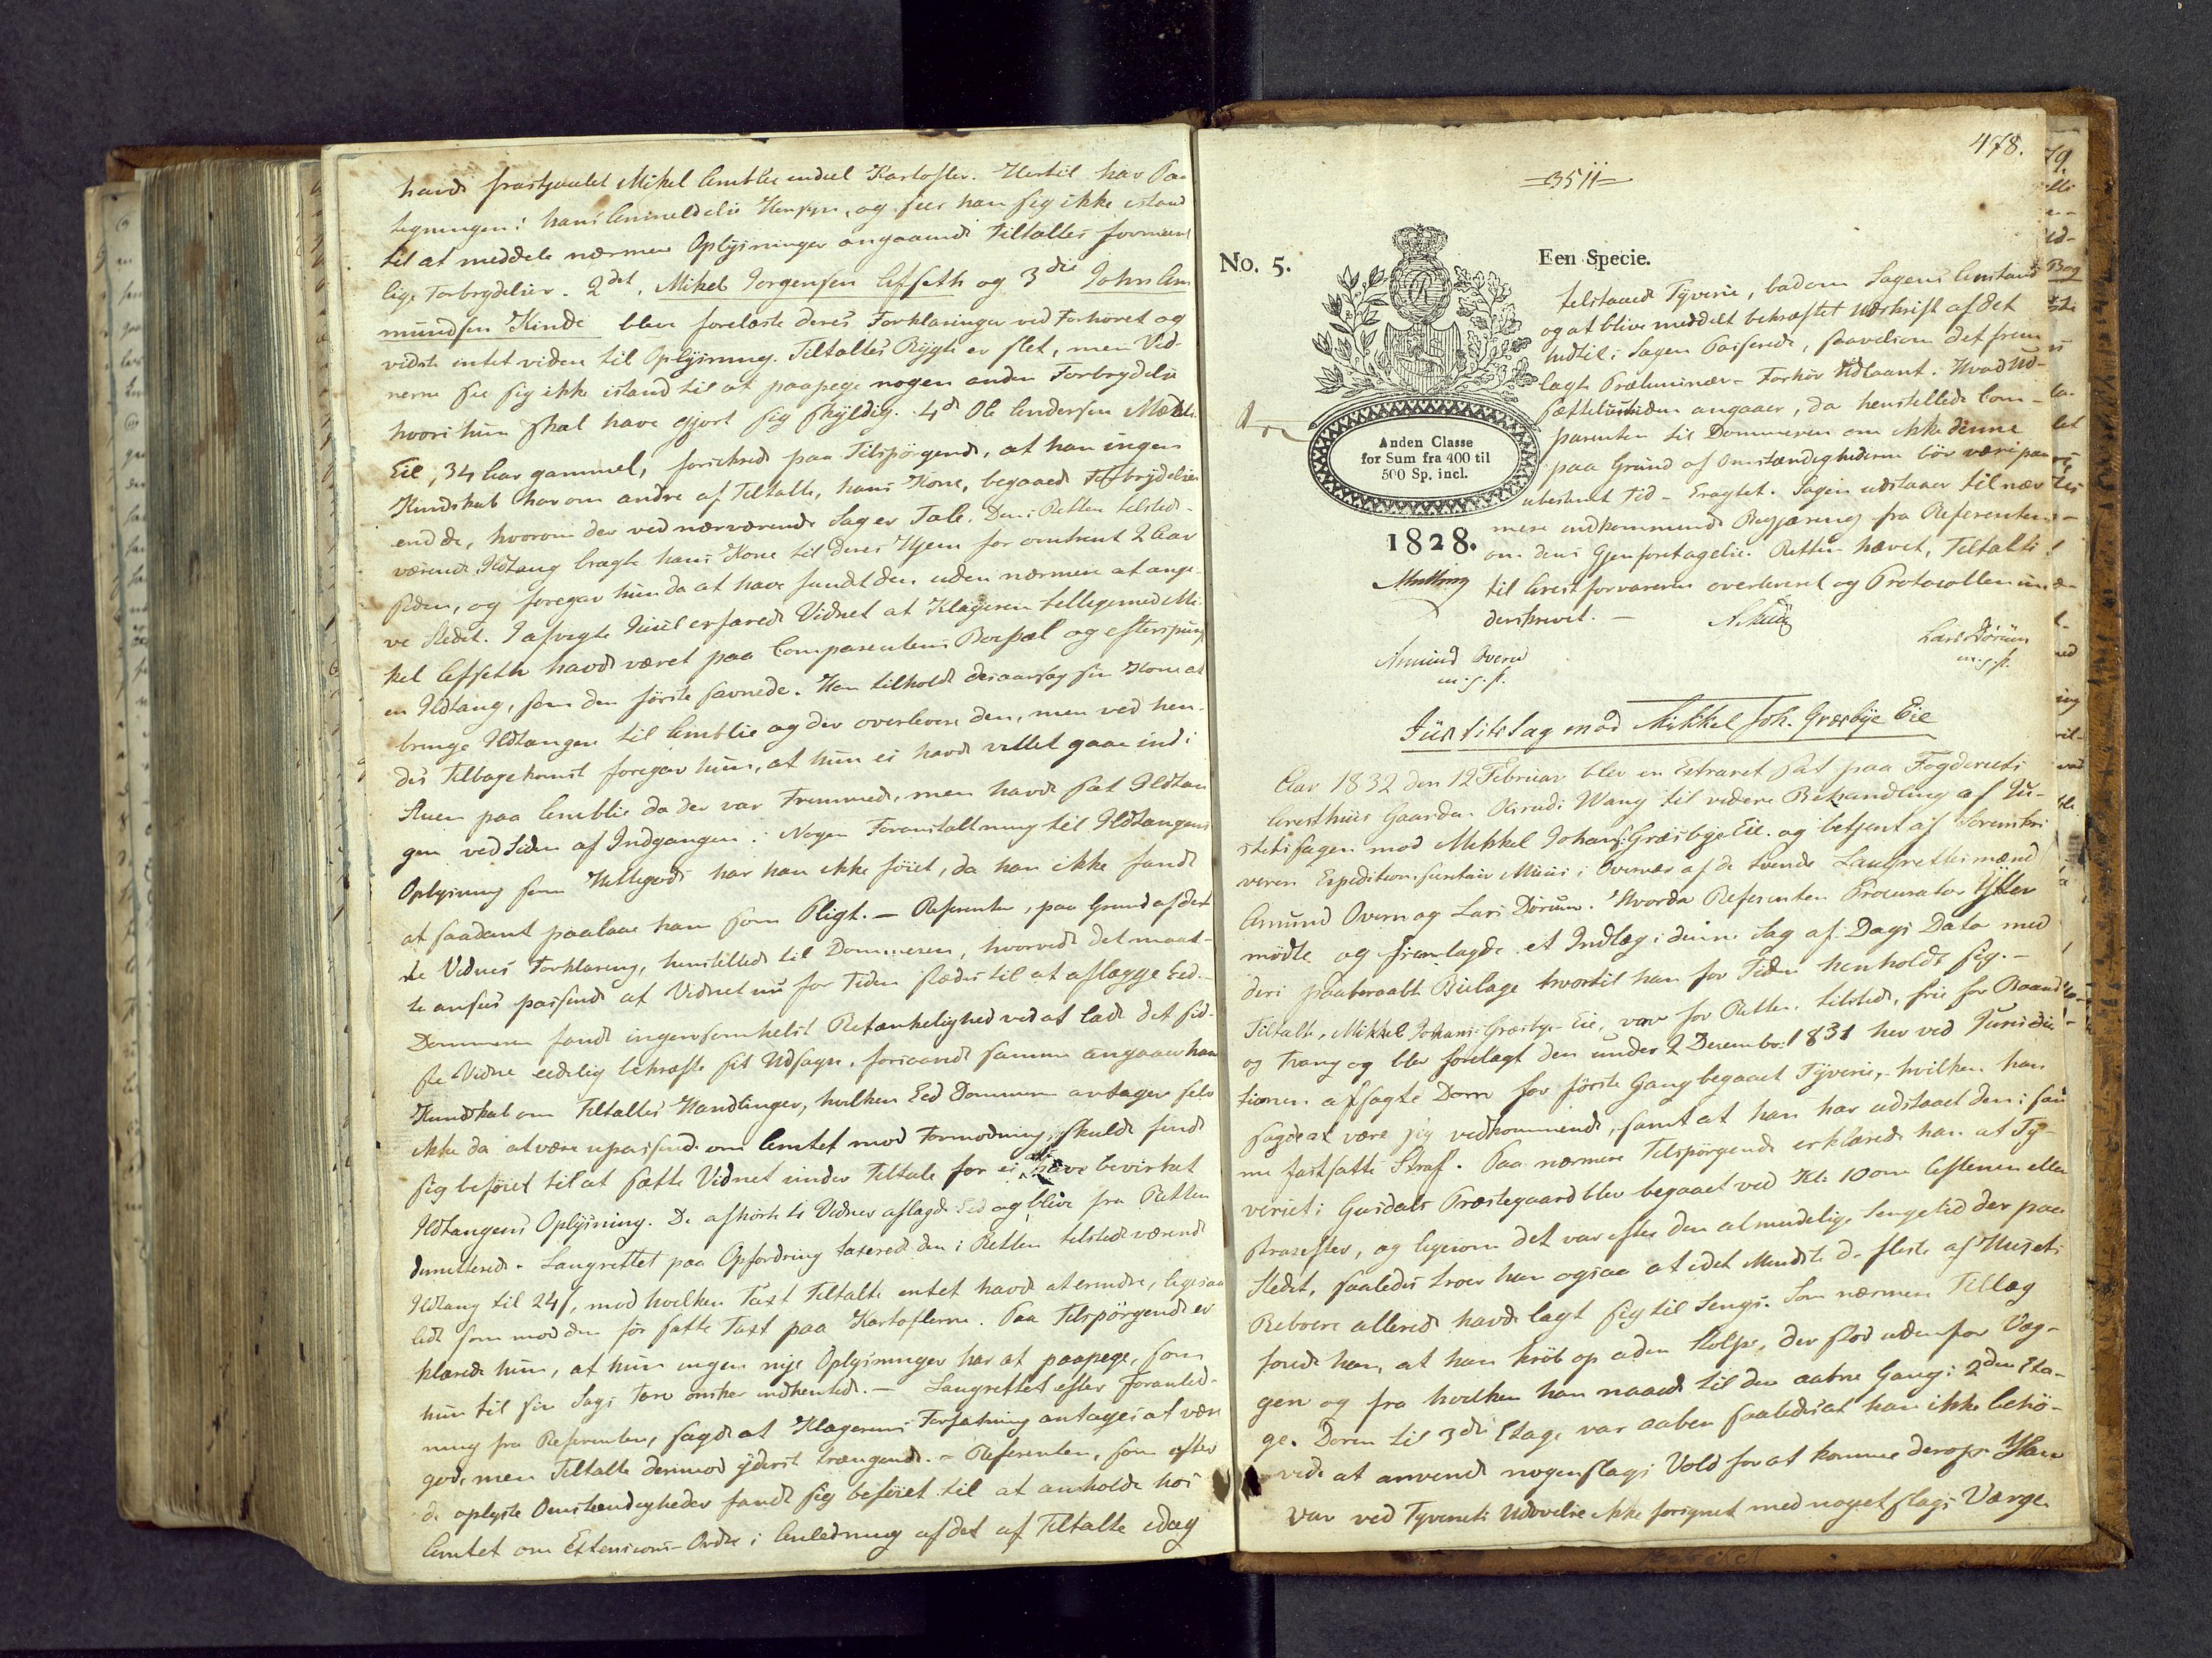 havde frastjaalet Mikel Amblie endeel Kartofler. Hertil har Paa
tegningen i hans Anmeldelse Hensyn, og seer han sig ikke istand
til at meddele nærmere Oplysninger angaaende Tiltaltes formeent
lige Forbrydelser. 2det, Mikel Jorgensen Afseth og 3die John Am
mundsen Kinde blev foreløste deres Forklaringer ved Forhøret og
vidste intet viden til Oplysning. Tiltaltes Rygte er slet, men Vid-
nerne see sig ikke istand til at paapege nogen anden Forbrydelse
hvori hun skal have gjort sig skyldig. 4de Ole Andersen
Eie, 34 Aar gammel, forsikrede paa Tilspörgende, at han ingen
Kundskab har om andre af Tiltalte, hans Kone, begaaede Forbrydelser
end de, hvorom der ved nærværende Sag er Tale. Den i Retten tilsted-
værende Ildtang bragte hans Kone til deres Hjem for omtrent 2 Aar
siden, og foregav hun da at have fundet den uden nærmere at angi-
ve Stedet. I afvigte Juul erfarede Vidnet at Klageren tilligemed Mi-
kel Afseth havde været paa Comparentens Boepæl og efterspurgt
en Ildtang, som den förste savnede. Han tilholdt desaarsag sin Kone at
bringe Ildtangen til Amblie og der overlevere den, men ved hen-
des Tilbagekomst foregav hun, at hun ei havde villet gaae ind i
Stuen paa Amblie da der var Fremmede, men havde sat Ildtan
gen ved Siden af Indgangen. Nogen Foranstaltning til Ildtangens
Oplysning som Hittegods har han ikke föiet, da han ikke fandt
at saadant paalaae ham som Pligt. — Referenten, paa Grund af det
te Vidnes Forklaring, henstillede til Dommeren, hvorvidt det maat-
te ansees passende at Vidnet nu for Tiden stædes til at aflægge Eed. —
Dommeren fandt ingensomhelst Betænkelighed ved at lade det sid-
ste Vidne eedelig bekræfte sit Udsagn, forsaavidt samme angaaer hans
Kundskab om Tiltaltes Handlinger, hvilken Eed Dommeren antager selv
ikke da at være upassende om Amtet mod Formodning skulde finde
sig beföiet til at sætte Vidnet under Tiltale for ei at have bevirket
Ildtangens Oplysning. De afhörte 4 Vidner aflagde Eed og bleve fra Retten
dimitterede. Laugrettet paa Opfordring taxerede den i Retten tilstedeværende
Ildtang til 24 s, mod hvilken Taxt Tiltalte intet havde at erindre, ligesaa
lidt som mod den för satte Taxt paa Kartoflerne. Paa Tilspörgende er
klærede hun, at hun ingen nye Oplysninger har at paapege, som
hun til sin Sags Tarv önsker indhentede. — Laugrettet efter Foranled-
ning fra Referenten, sagde at Klagerens Forfatning antages at være
god, men Tiltalte derimod yderst trængende. — Referenten, som efter
de oplyste Omstændigheder fandt sig beföiet til at anholde hos
Amtet om Extensions-Ordre i Anledning af det af Tiltalte idag
478.
=3511=
No. 5.
Een Specie.
Anden Classe
for Sum fra 400 til
500 Sp. incl.
1828.
tilstaaede Tyverie, bad om Sagens Anstand
og at blive meddelt bekræftet Udskrift af det
indtil i Sagen Passerede, saavelsom det frem
lagte Præliminær-Forhör Udlaant. Hvad Ud-
sættelsestiden angaaer, da henstillede Com-
parenten til Dommeren om ikke denne
paa Grund af Omstændighederne bör være paa
ubestemt Tid — Eragtet. Sagen udstaaer til nær
mere indkommende Begjæring fra Referenten
om dens Gjenforetagelse. Retten hævet, Tiltalte
til Arestforvareren overleveret og Protocollen un
derskrevet. —
Amund Overn
m. f. P.
Lars Dörum
m. f. P.
Justits Sag mod Mikkel Joh. Græsbye Eie
Aar 1832 den 12 Februar blev en Extraret sat paa Fogderiets
Aresthuus Gaarden Wang til videre Behandling af Ju-
stitssagen mod Mikkel Johans: Græsbye Eie. og betjent af Sorenskri
veren Expeditionssecretair i Overvær af de tvende Laugrettesmænd
Amund Overn og Lars Dörum. Hvorda Referenten Procurator
mödte og fremlagde et Indlæg i denne Sag af Dags Dato med
deri paaberaabt Bielage hvortil han for Tiden henholdt sig. —
Tiltalte, Mikkel Johans: Græsbye Eie, var for Retten tilstede, frie for Baand
og Tvang og blev forelagt den under 2 Decembr: 1831 her ved Jurisdic-
tionen afsagte Dom for förste Gang begaaet Tyverie, hvilken han
sagde at være sig vedkommende, samt at han har udstaaet den i sam
me fastsatte Straf. Paa nærmere Tilspörgende erklærede han at Ty-
veriet i Gusdals Præstegaard blev begaaet ved Kl: 10 om Aftenen eller
strax efter, og ligesom det var efter den almindelige Sengetid der paa
Stedet, saaledes troer han ogsaa at idet Mindste de fleste af Husets
Beboere allerede havde lagt sig til Sengs. Som nærmere Tillæg
förde han, at han kröb op aden Stolpe, der stod udenfor Væg-
gen og fra hvilken han naaede til den aabne Gang i 2den Eta-
ge. Doren til 3die Etage var aaben saaledes at han ikke behö-
vede at anvende nogenslags Vold for at komme derop. Han
var ved Tyveriets Udövelse ikke forsynet med nogetslags Værge